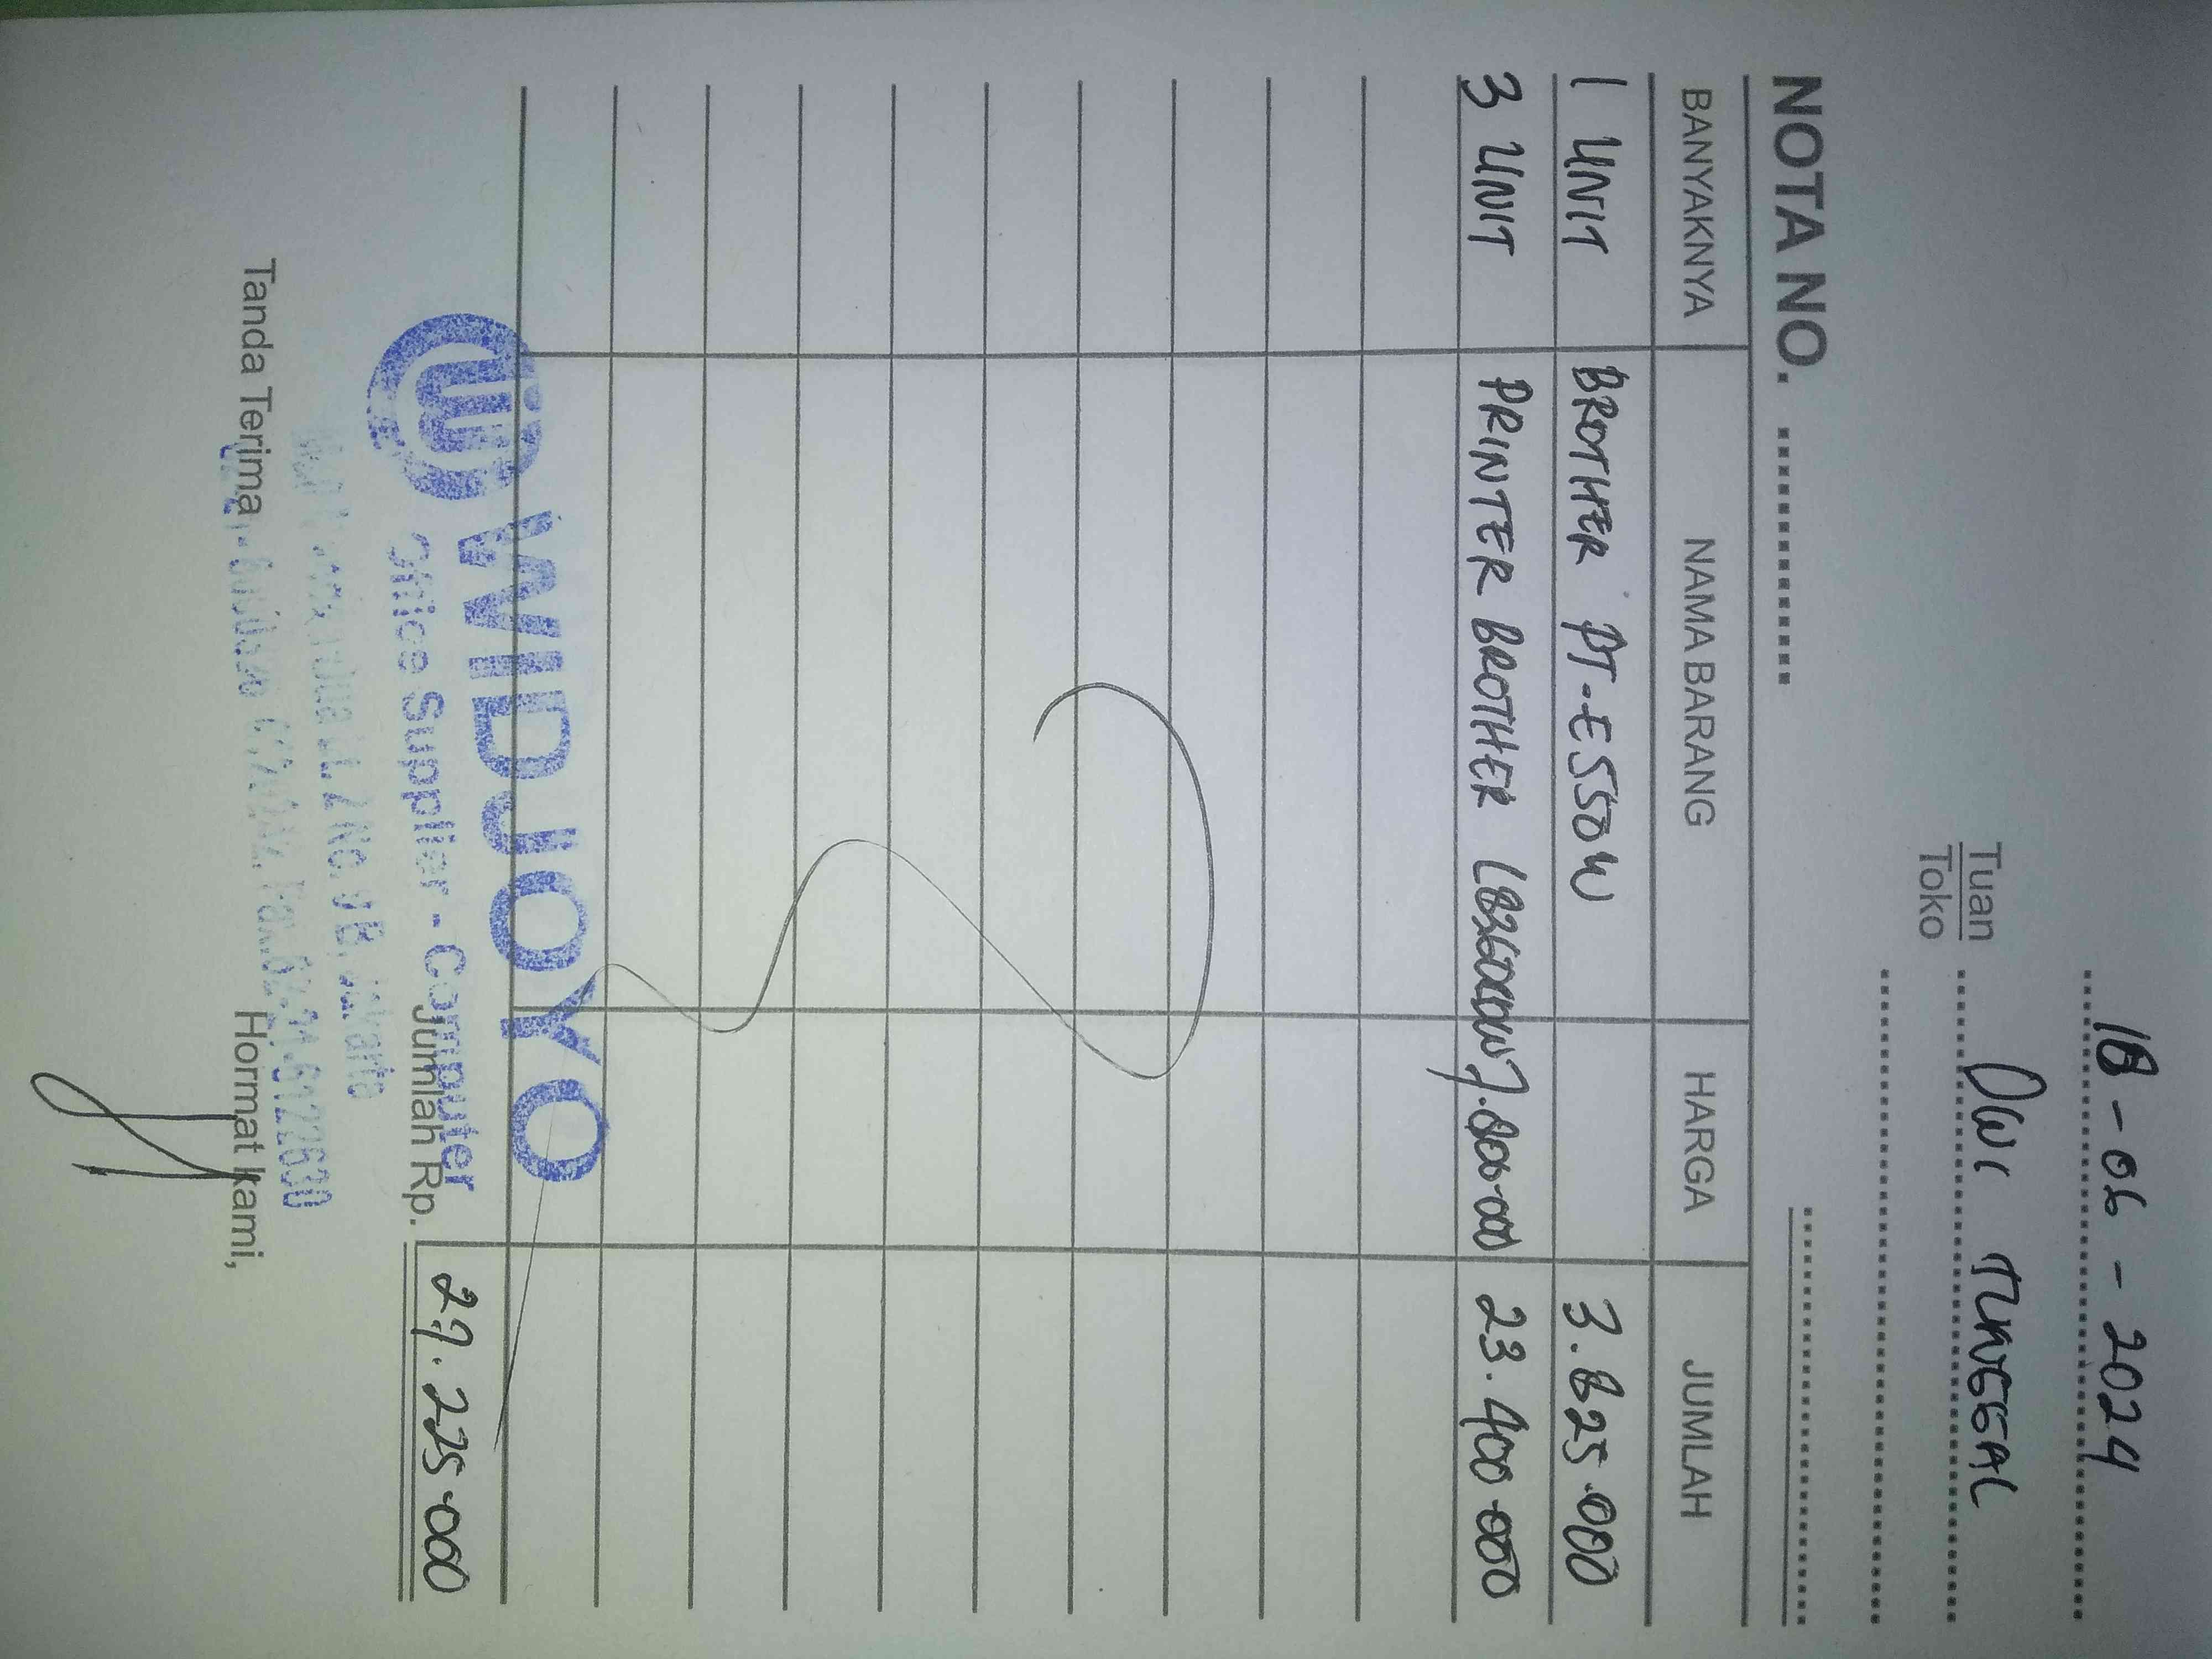 18-06-2024
Tuan DWI TUNGGAL
Toko
NOTA NO.
BANYAKNYA NAMA BARANG HARGA JUMLAH
1 UNIT BROTHER PT-E550W 3.825.000
3 UNIT PRINTER BROTHER 7.800.000 23.400.000
WIDJOYO
Office Supplier - Computer
Jumlah Rp. 27.225.000
Tanda Terima Hormat kami,